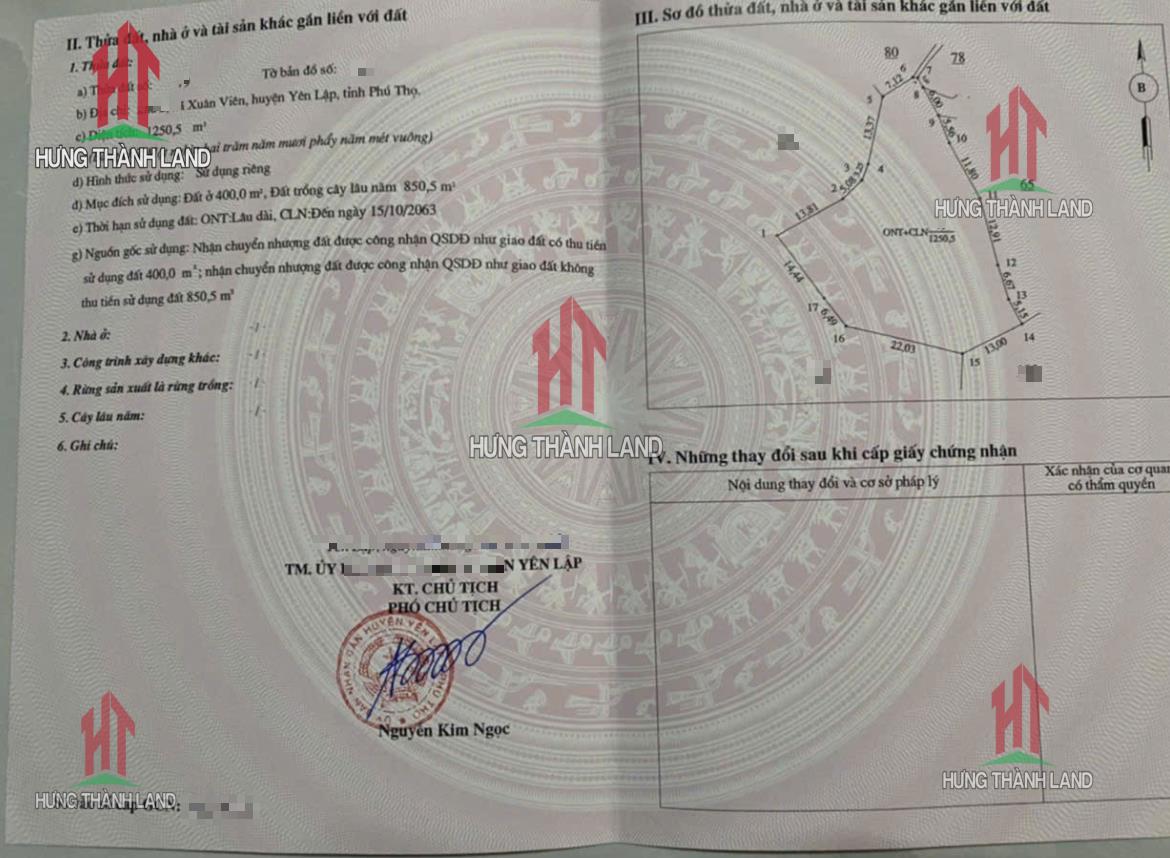 II. Thửa đất, nhà ở và tài sản khác gắn liền với đất
1. Thửa đất:
a) Thửa đất số:
Tờ bản đồ số:
b) Địa chỉ: Xuân Viên, huyện Yên Lập, tỉnh Phú Thọ.
c) Diện tích: 1250,5 m²
hai trăm năm mươi phẩy năm mét vuông)
d) Hình thức sử dụng: Sử dụng riêng
đ) Mục đích sử dụng: Đất ở 400,0 m², Đất trồng cây lâu năm 850,5 m²
e) Thời hạn sử dụng đất: ONT:Lâu dài, CLN:Đến ngày 15/10/2063
g) Nguồn gốc sử dụng: Nhận chuyển nhượng đất được công nhận QSDĐ như giao đất có thu tiền
sử dụng đất 400,0 m²; nhận chuyển nhượng đất được công nhận QSDĐ như giao đất không
thu tiền sử dụng đất 850,5 m²
2. Nhà ở: -/-
3. Công trình xây dựng khác: -/-
4. Rừng sản xuất là rừng trồng: -/-
5. Cây lâu năm: -/-
6. Ghi chú:
TM. ỦY N YÊN LẬP
KT. CHỦ TỊCH
PHÓ CHỦ TỊCH
Nguyễn Kim Ngọc
III. Sơ đồ thửa đất, nhà ở và tài sản khác gắn liền với đất
80
78
B
6
7
7,12
8
5
6,00
9
5,56
10
13,37
11,80
3
4
3,25
2
5,08
13,81
1
11
65
ONT+CLN
1250,5
12,91
12
14,44
6,67
13
17
6,49
5,15
14
16
22,03
13,00
15
IV. Những thay đổi sau khi cấp giấy chứng nhận
Nội dung thay đổi và cơ sở pháp lý
Xác nhận của cơ quan
có thẩm quyền
HƯNG THÀNH LAND
HƯNG THÀNH LAND
HƯNG THÀNH LAND
HƯNG THÀNH LAND
HƯNG THÀNH LAND